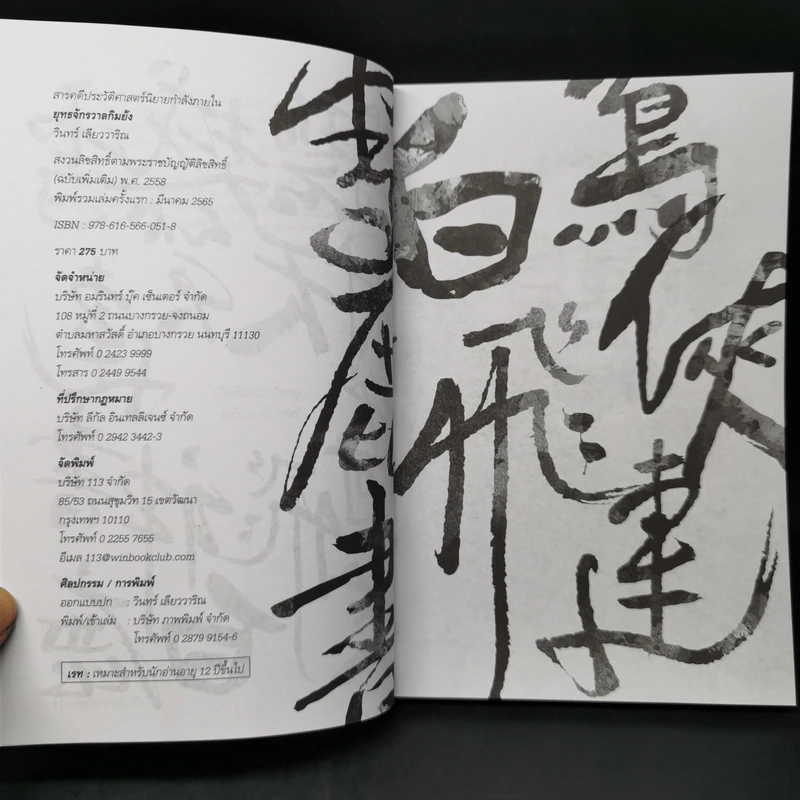 สารคดีประวัติศาสตร์นิยายกำลังภายใน
ยุทธจักรวาลกิมย้ง
วินทร์ เลียววาริณ
สงวนลิขสิทธิ์ตามพระราชบัญญัติลิขสิทธิ์
(ฉบับเพิ่มเติม) พ.ศ. 2558
พิมพ์รวมเล่มครั้งแรก : มีนาคม 2565
ISBN : 978-616-566-051-8
ราคา 275 บาท
จัดจำหน่าย
บริษัท อมรินทร์ บุ๊ค เซ็นเตอร์ จำกัด
108 หมู่ที่ 2 ถนนบางกรวย-จงถนอม
ตำบลมหาสวัสดิ์ อำเภอบางกรวย นนทบุรี 11130
โทรศัพท์ 0 2423 9999
โทรสาร 0 2449 9544
ที่ปรึกษากฎหมาย
บริษัท ลีกัล อินเทลลิเจนซ์ จำกัด
โทรศัพท์ 0 2942 3442-3
จัดพิมพ์
บริษัท 113 จำกัด
85/53 ถนนสุขุมวิท 15 เขตวัฒนา
กรุงเทพฯ 10110
โทรศัพท์ 0 2255 7655
อีเมล 113@winbookclub.com
ศิลปกรรม / การพิมพ์
ออกแบบปก : วินทร์ เลียววาริณ
พิมพ์/เข้าเล่ม : บริษัท ภาพพิมพ์ จำกัด
โทรศัพท์ 0 2879 9154-6
เรท : เหมาะสำหรับนักอ่านอายุ 12 ปีขึ้นไป
俠
白飛連
書